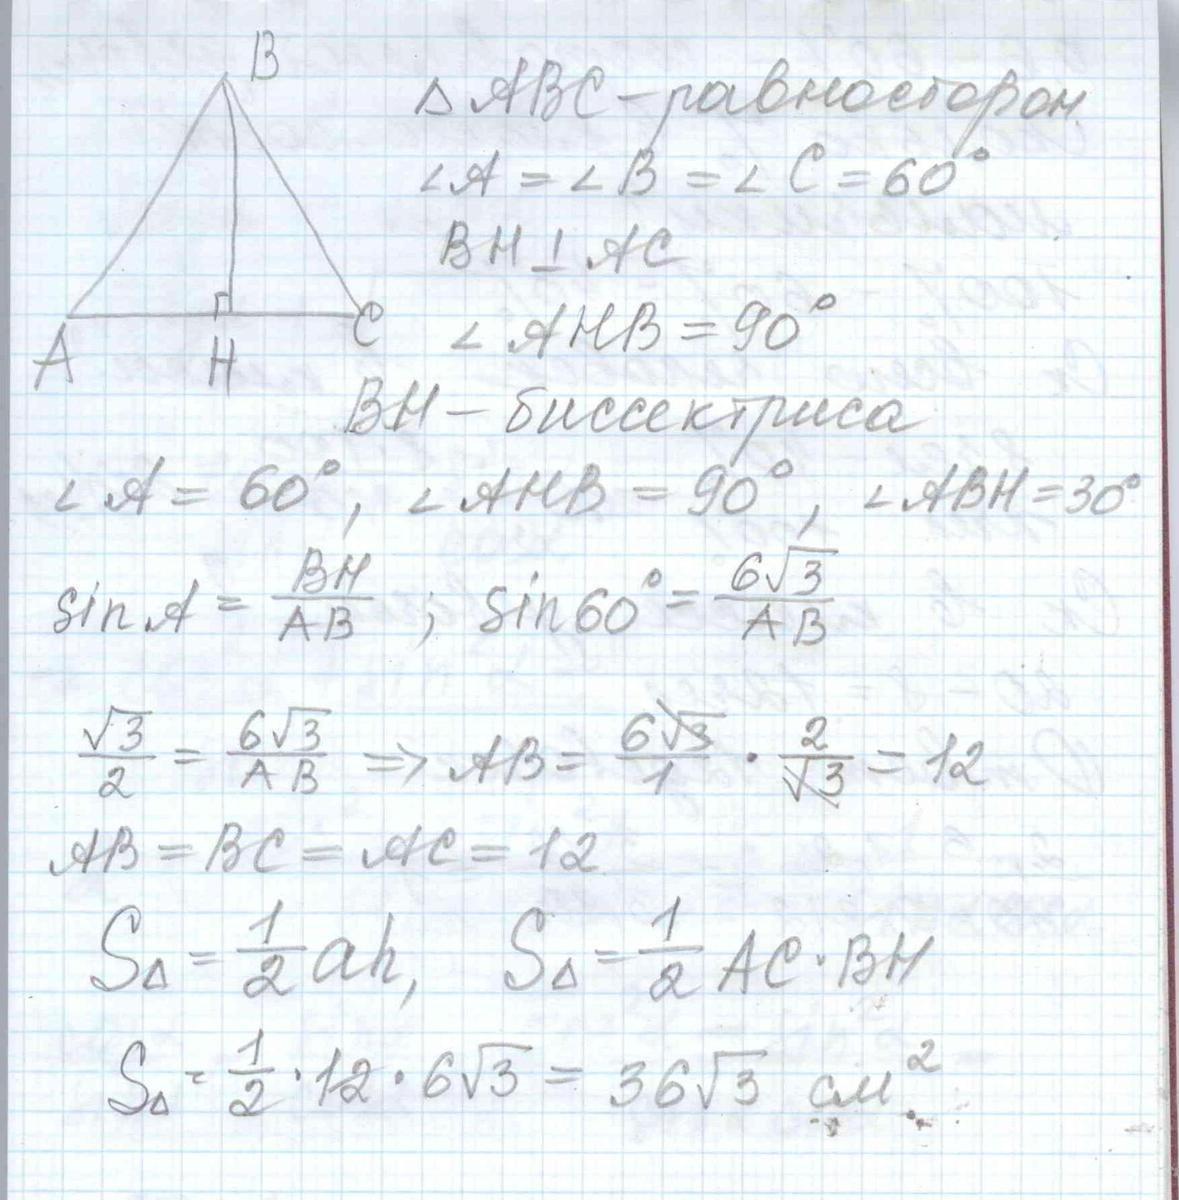 B
△ABC – равносторон.
∠A = ∠B = ∠C = 60°
BH ⊥ AC
A H C
∠AHB = 90°
BH – биссектриса
∠A = 60°, ∠AHB = 90°, ∠ABH = 30°
sin A = BH/AB ; sin 60° = 6√3/AB
√3/2 = 6√3/AB => AB = 6√3/1 · 2/√3 = 12
AB = BC = AC = 12
S△ = 1/2 ah, S△ = 1/2 AC · BH
S△ = 1/2 · 12 · 6√3 = 36√3 см².